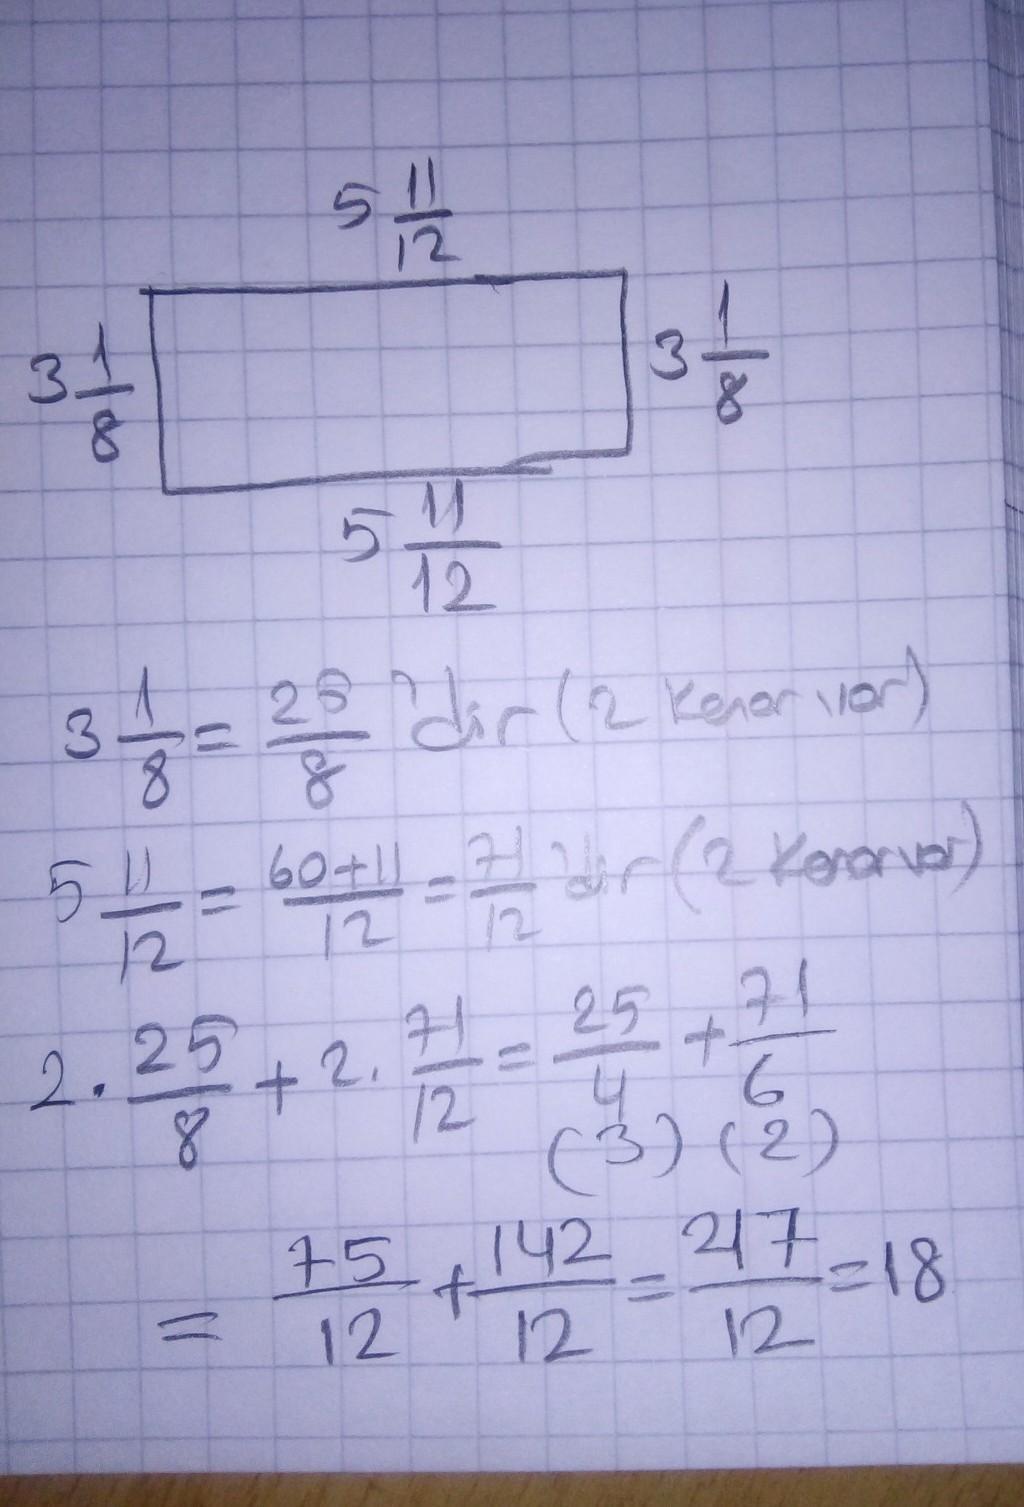 5 11/12
3 1/8
3 1/8
5 11/12
3 1/8 = 25/8 'dir (2 kenar var)
5 11/12 = 60+11/12 = 71/12 'dir (2 kenar var)
2 . 25/8 + 2 . 71/12 = 25/4 + 71/6
(3) (2)
= 75/12 + 142/12 = 217/12 = 18